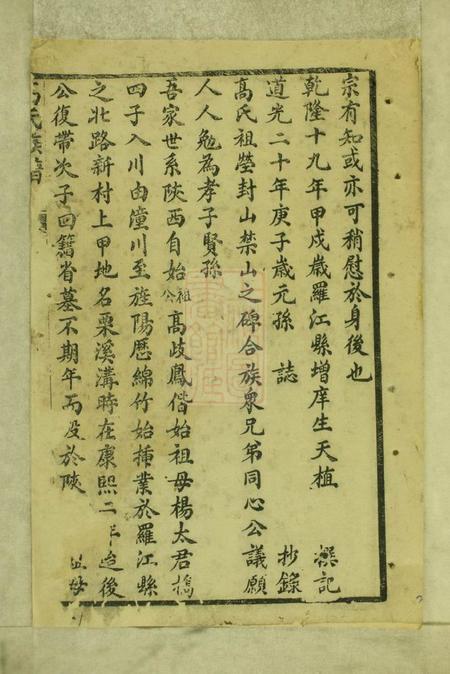 宗有知或亦可稍慰於身後也
乾隆十九年甲戌歲羅江縣增庠生天植 撰記
道光二十年庚子歲元孫 誌 抄錄
髙氏祖塋封山禁山之碑合族衆兄弟同心公議願
人人勉為孝子賢孫
吾家世系陝西自始祖公髙歧鳳偕始祖母楊太君攜
四子入川由潼川至旌陽歷綿竹始揷業於羅江縣
之北路新村上甲地名栗溪溝時在康熙二年
後
公復帶次子回籍省墓不期年而没於陝
氏族譜